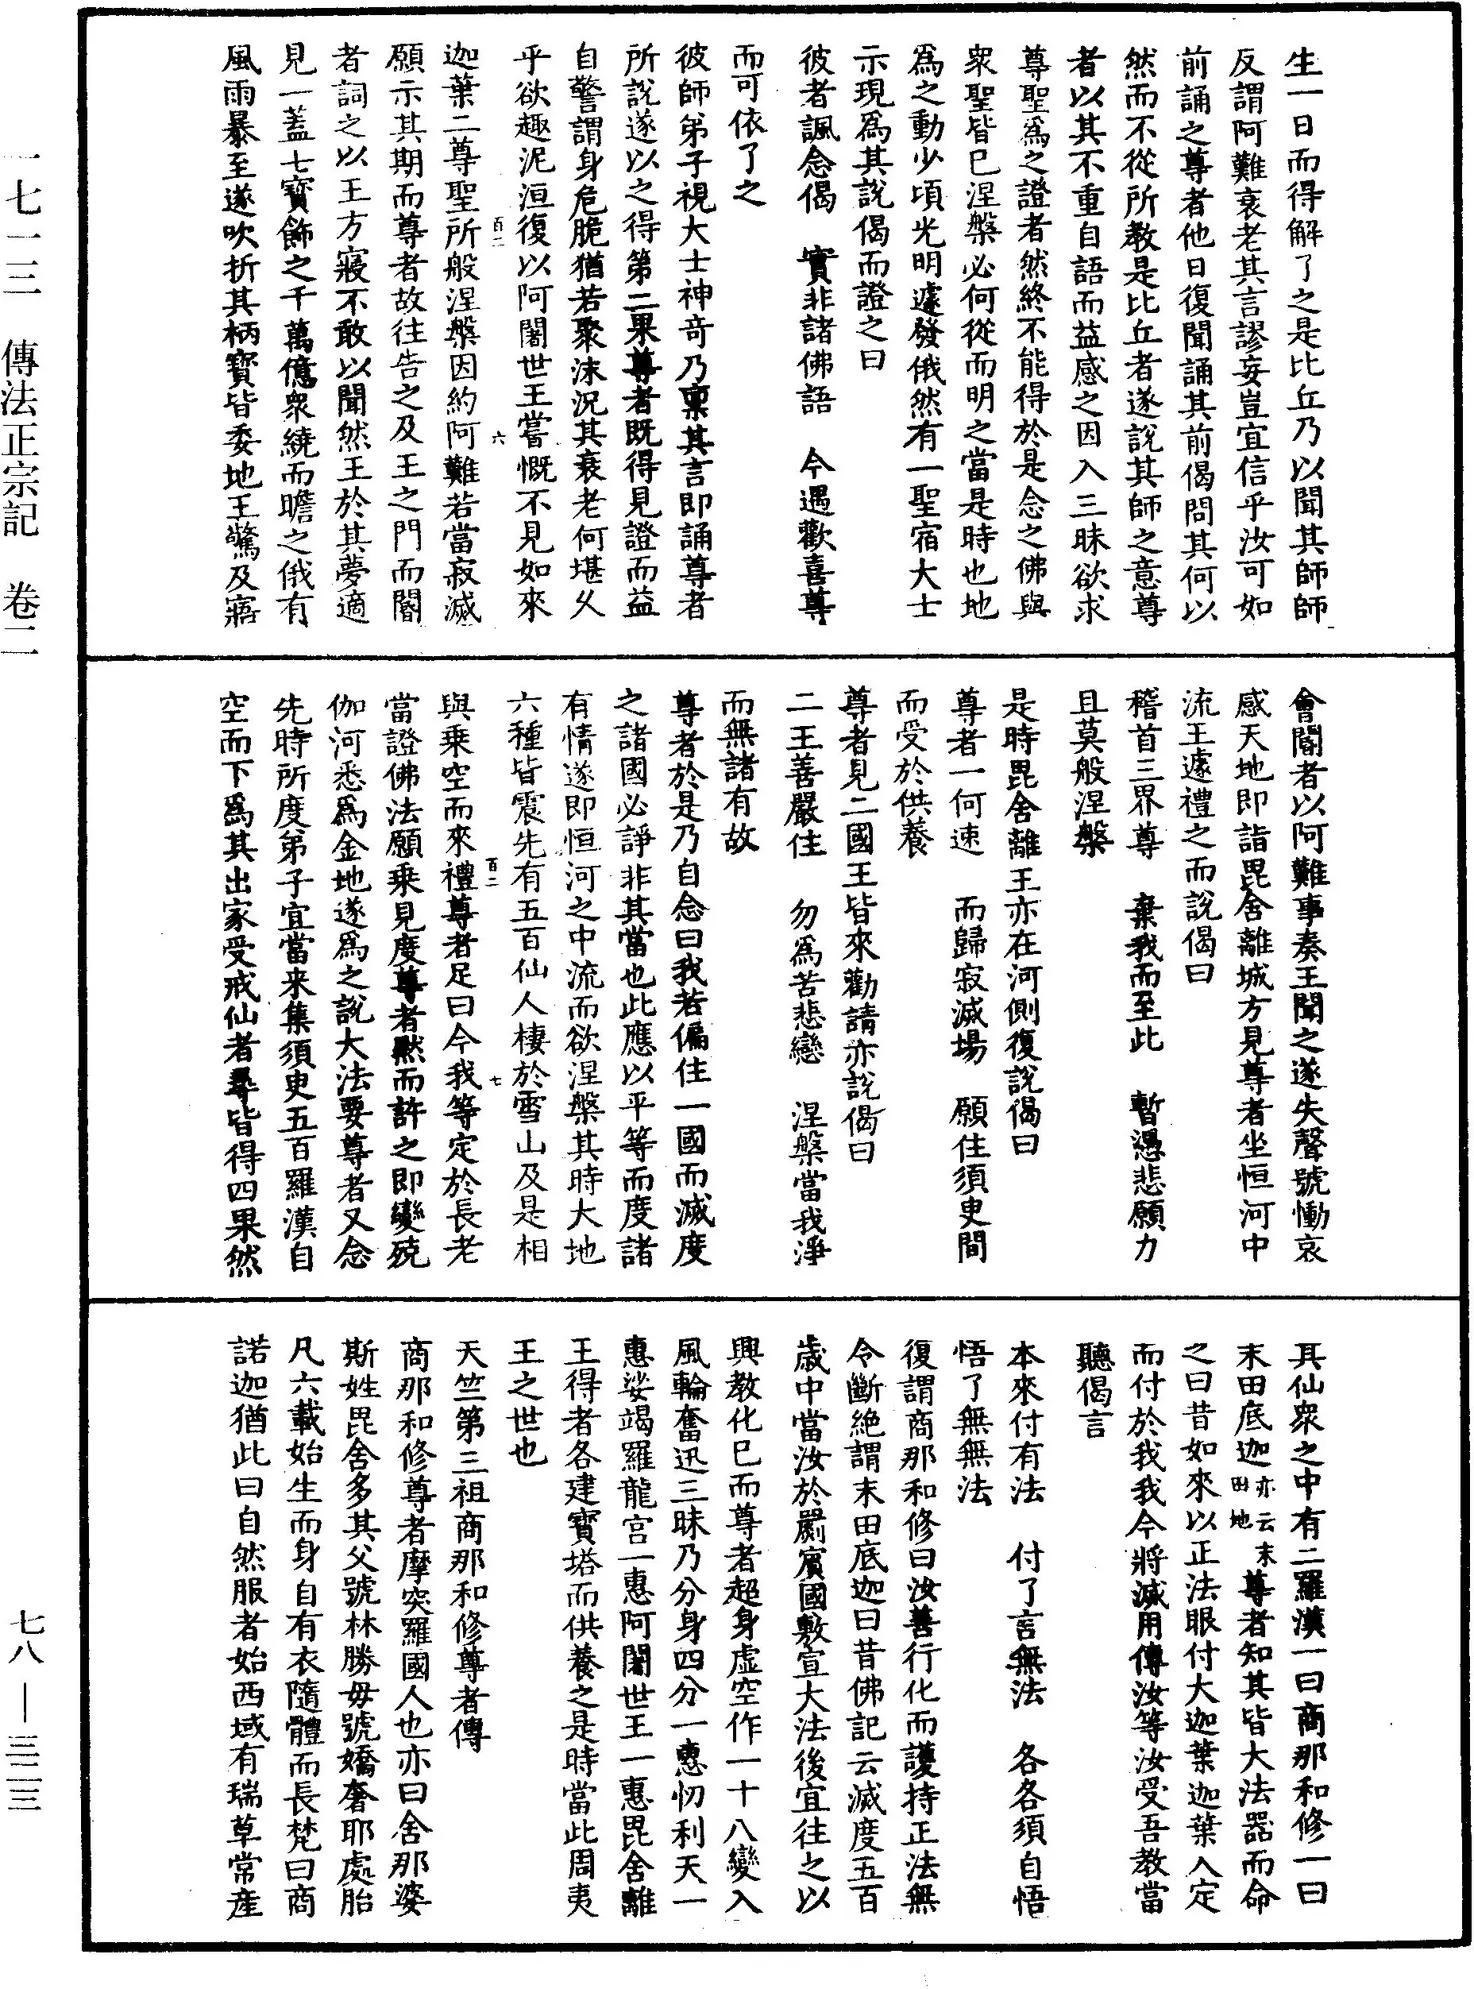 一七一三　傳法正宗記　卷二
生一日而得解了之是比丘乃以聞其師師
反謂阿難衰老其言謬妄豈宜信乎汝可如
前誦之尊者他日復聞誦其前偈問其何以
然而不從所教是比丘者遂說其師之意尊
者以其不重自語而益感之因入三昧欲求
尊聖爲之證者然終不能得於是念之佛與
衆聖皆已涅槃必何從而明之當是時也地
爲之動少頃光明遽發俄然有一聖宿大士
示現爲其說偈而證之曰
彼者諷念偈　實非諸佛語　今遇歡喜尊
而可依了之
彼師弟子視大士神奇乃稟其言即誦尊者
所說遂以之得第二果尊者既得見證而益
自警謂身危脆猶若聚沫況其衰老何堪久
乎欲趣泥洹復以阿闍世王嘗慨不見如來
百二
六
迦葉二尊聖所般涅槃因約阿難若當寂滅
願示其期而尊者故往告之及王之門而閽
者詞之以王方寢不敢以聞然王於其夢適
見一蓋七寶飾之千萬億衆繞而瞻之俄有
風雨暴至遂吹折其柄寶皆委地王驚及寤
會閽者以阿難事奏王聞之遂失聲號慟哀
感天地即詣毘舍離城方見尊者坐恒河中
流王遽禮之而說偈曰
稽首三界尊　棄我而至此　暫憑悲願力
且莫般涅槃
是時毘舍離王亦在河側復說偈曰
尊者一何速　而歸寂滅場　願住須臾間
而受於供養
尊者見二國王皆來勸請亦說偈曰
二王善嚴住　勿爲苦悲戀　涅槃當我淨
而無諸有故
尊者於是乃自念曰我若偏住一國而滅度
之諸國必諍非其當也此應以平等而度諸
有情遂即恒河之中流而欲涅槃其時大地
六種皆震先有五百仙人棲於雪山及是相
百二
七
與乘空而來禮尊者足曰今我等定於長老
當證佛法願乘見度尊者默而許之即變殑
伽河悉爲金地遂爲之說大法要尊者又念
先時所度弟子宜當來集須臾五百羅漢自
空而下爲其出家受戒仙者尋皆得四果然
其仙衆之中有二羅漢一曰商那和修一曰
末田底迦亦云末田地尊者知其皆大法器而命
之曰昔如來以正法眼付大迦葉迦葉入定
而付於我我今將滅用傳汝等汝受吾教當
聽偈言
本來付有法　付了言無法　各各須自悟
悟了無無法
復謂商那和修曰汝善行化而護持正法無
令斷絕謂末田底迦曰昔佛記云滅度五百
歲中當汝於罽賓國敷宣大法後宜往之以
興教化已而尊者超身虛空作一十八變入
風輪奮迅三昧乃分身四分一惠忉利天一
惠娑竭羅龍宮一惠阿闍世王一惠毘舍離
王得者各建寶塔而供養之是時當此周夷
王之世也
天竺第三祖商那和修尊者傳
商那和修尊者摩突羅國人也亦曰舍那婆
斯姓毘舍多其父號林勝母號嬌奢耶處胎
凡六載始生而身自有衣隨體而長梵曰商
諾迦猶此曰自然服者始西域有瑞草常產
七八—三三三